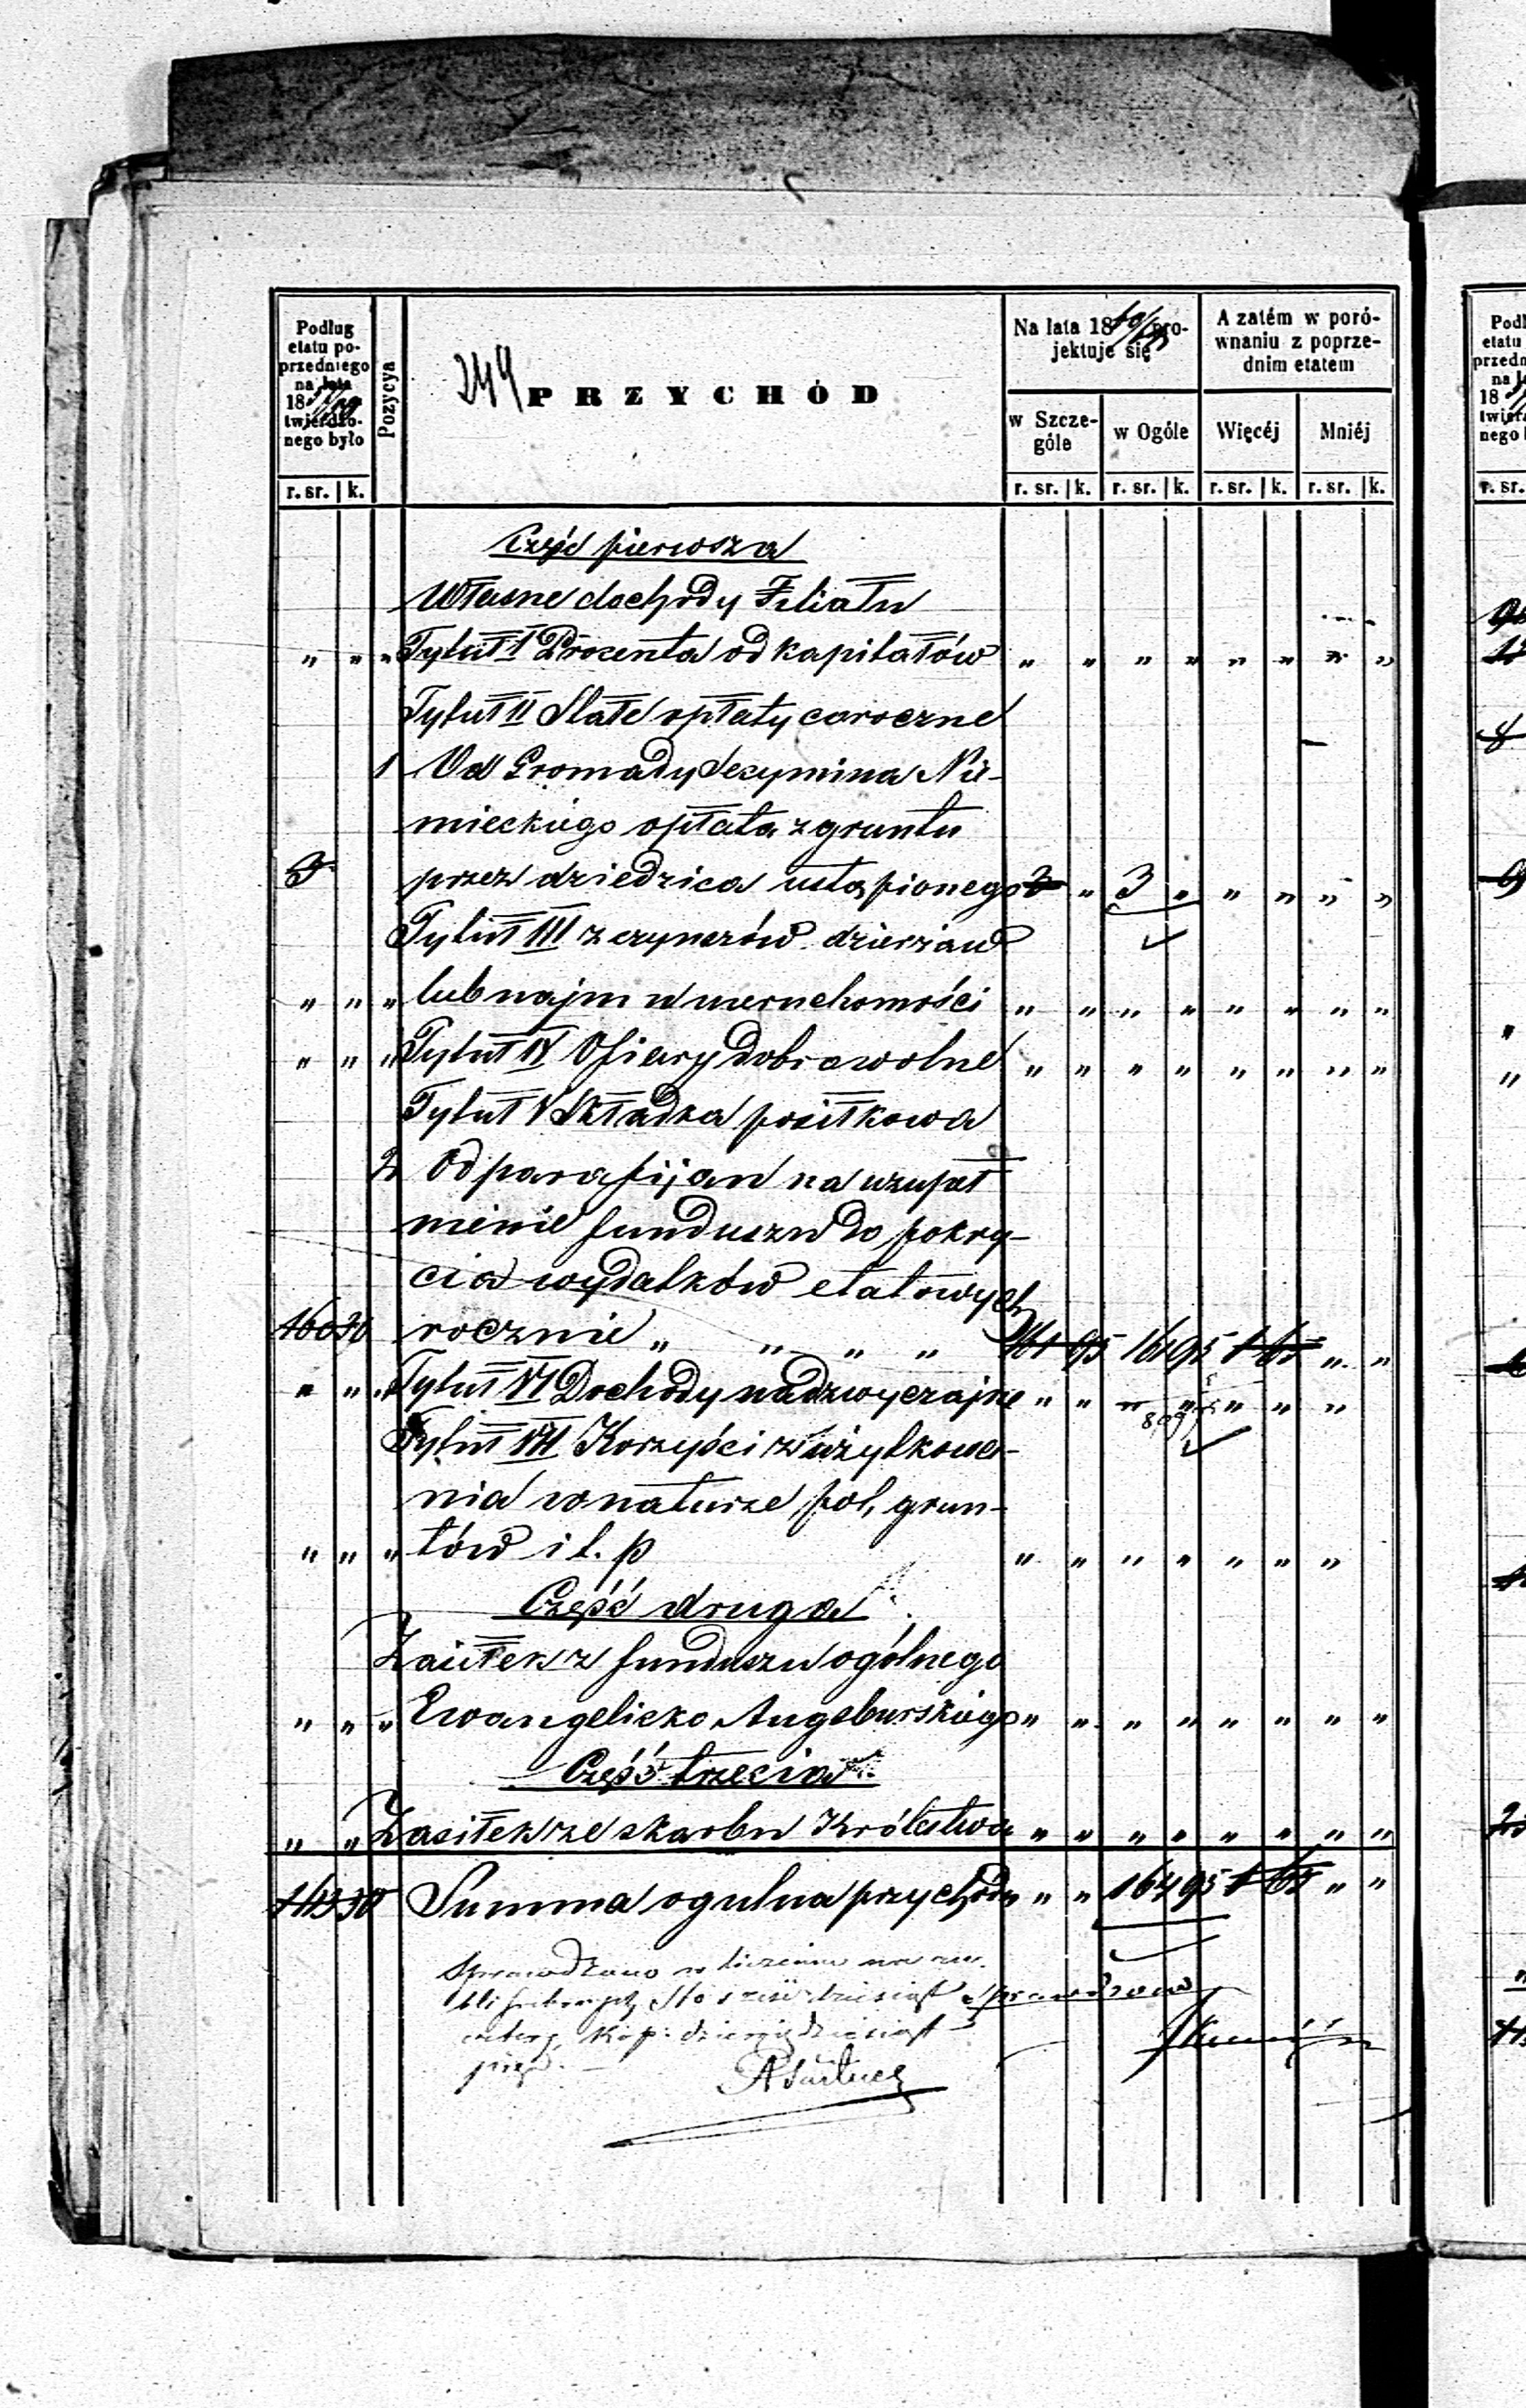 Podług etatu poprzedniego na lata 18 twierdzonego było
Pozycya
244 PRZYCHÓD
Na lata 18 projektuje się
A zatém w porównaniu z poprzednim etatem
w Szczególe
w Ogóle
Więcéj
Mniéj
r. sr. k. r. sr. k. r. sr. k. r. sr. k. r. sr. k.
Część pierwsza
Własne dochody Filiału
" " " Tytuł I Procenta od kapitałów " " " " " " " "
Tytuł II Stałe opłaty coroczne
1 Od Gromady Secymina Nie-
mieckiego opłata z gruntu
3 przez dziedzica ustąpionego 3 " 3 " " " " "
Tytuł III z czynszów dzierżaw
" " " lub najmu nieruchomości " " " " " " " "
" " " Tytuł IV Ofiary dobrowolne " " " " " " " "
Tytuł V Składka posiłkowa
2 Od parafijan na uzupeł
nienie funduszu do pokry-
cia wydatków etatowych
160 30 rocznie " " " " 161 95 161 95 1 65 " "
" " " Tytuł VI Dochody nadzwyczajne " " " " " " "
Tytuł VII Korzyści z użytkowa-
nia w naturze pol, grun-
" " " tów i t. p " " " " " " "
Część druga
Zasiłek z funduszu ogólnego
" " " Ewangelicko Augsburskiego " " " " " " " "
Część trzecia
" " Zasiłek ze skarbu Królestwa " " " " " " " "
163 30 Summa ogulna przychodu " " 164 95 1 65 " "
Sprawdzono w liczeniu na
Sto sześćdziesiąt Sprawdzono
cztery kop: dziewięćdziesiąt
pięć.